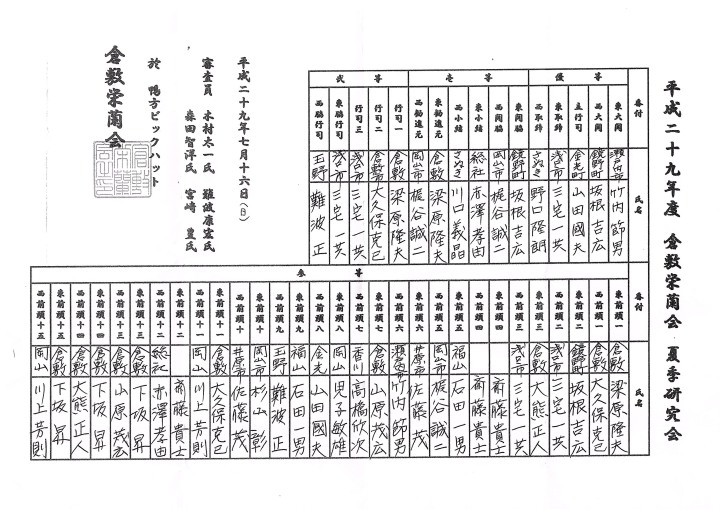 平成二十九年度 倉敷栄蘭会 夏季研究会
番付 氏名
優等
東大関 瀬戸内市 竹内節男
西大関 鏡野町 坂根吉広
主行司 金光町 山田國夫
東取締 浅口市 三宅一共
西取締 さぬき 野口隆朗
壱等
東関脇 鏡野町 坂根吉広
西関脇 岡山市 梶谷誠二
東小結 総社 赤澤孝由
西小結 さぬき 川口義晶
東勧進元 倉敷 梁原隆夫
西勧進元 岡山市 梶谷誠二
弐等
行司一 倉敷 梁原隆夫
行司二 倉敷 大久保克己
行司三 浅口市 三宅一共
東脇行司 浅口市 三宅一共
西脇行司 玉野 難波正
番付 氏名
参等
東前頭一 倉敷 梁原隆夫
西前頭一 倉敷 大久保克己
東前頭二 鏡野町 坂根吉広
西前頭二 浅口市 三宅一共
東前頭三 倉敷 大熊正人
西前頭三 浅口市 三宅一共
東前頭四 斎藤貴士
西前頭四 斎藤貴士
東前頭五 福山 石田一男
西前頭五 岡山市 梶谷誠二
東前頭六 井原市 佐藤茂
西前頭六 瀬戸内市 竹内節男
東前頭七 倉敷 山原茂広
西前頭七 香川 高橋欣次
東前頭八 岡山 児子敏雄
西前頭八 金光 山田國夫
東前頭九 福山 石田一男
西前頭九 玉野 難波正
東前頭十 岡山市 杉山彰
西前頭十 井原市 佐藤茂
東前頭十一 倉敷 大久保克己
西前頭十一 岡山 川上芳則
東前頭十二 斎藤貴士
西前頭十二 総社 赤澤孝由
東前頭十三 倉敷 下坂昇
西前頭十三 倉敷 山原茂広
東前頭十四 倉敷 下坂昇
西前頭十四 倉敷 大熊正人
東前頭十五 倉敷 下坂昇
西前頭十五 岡山 川上芳則
平成二十九年七月十六日(日)
審査員 木村太一氏 難波康宏氏
森田智洋氏 宮崎豊氏
於 鴨方ビックハット
倉敷栄蘭会